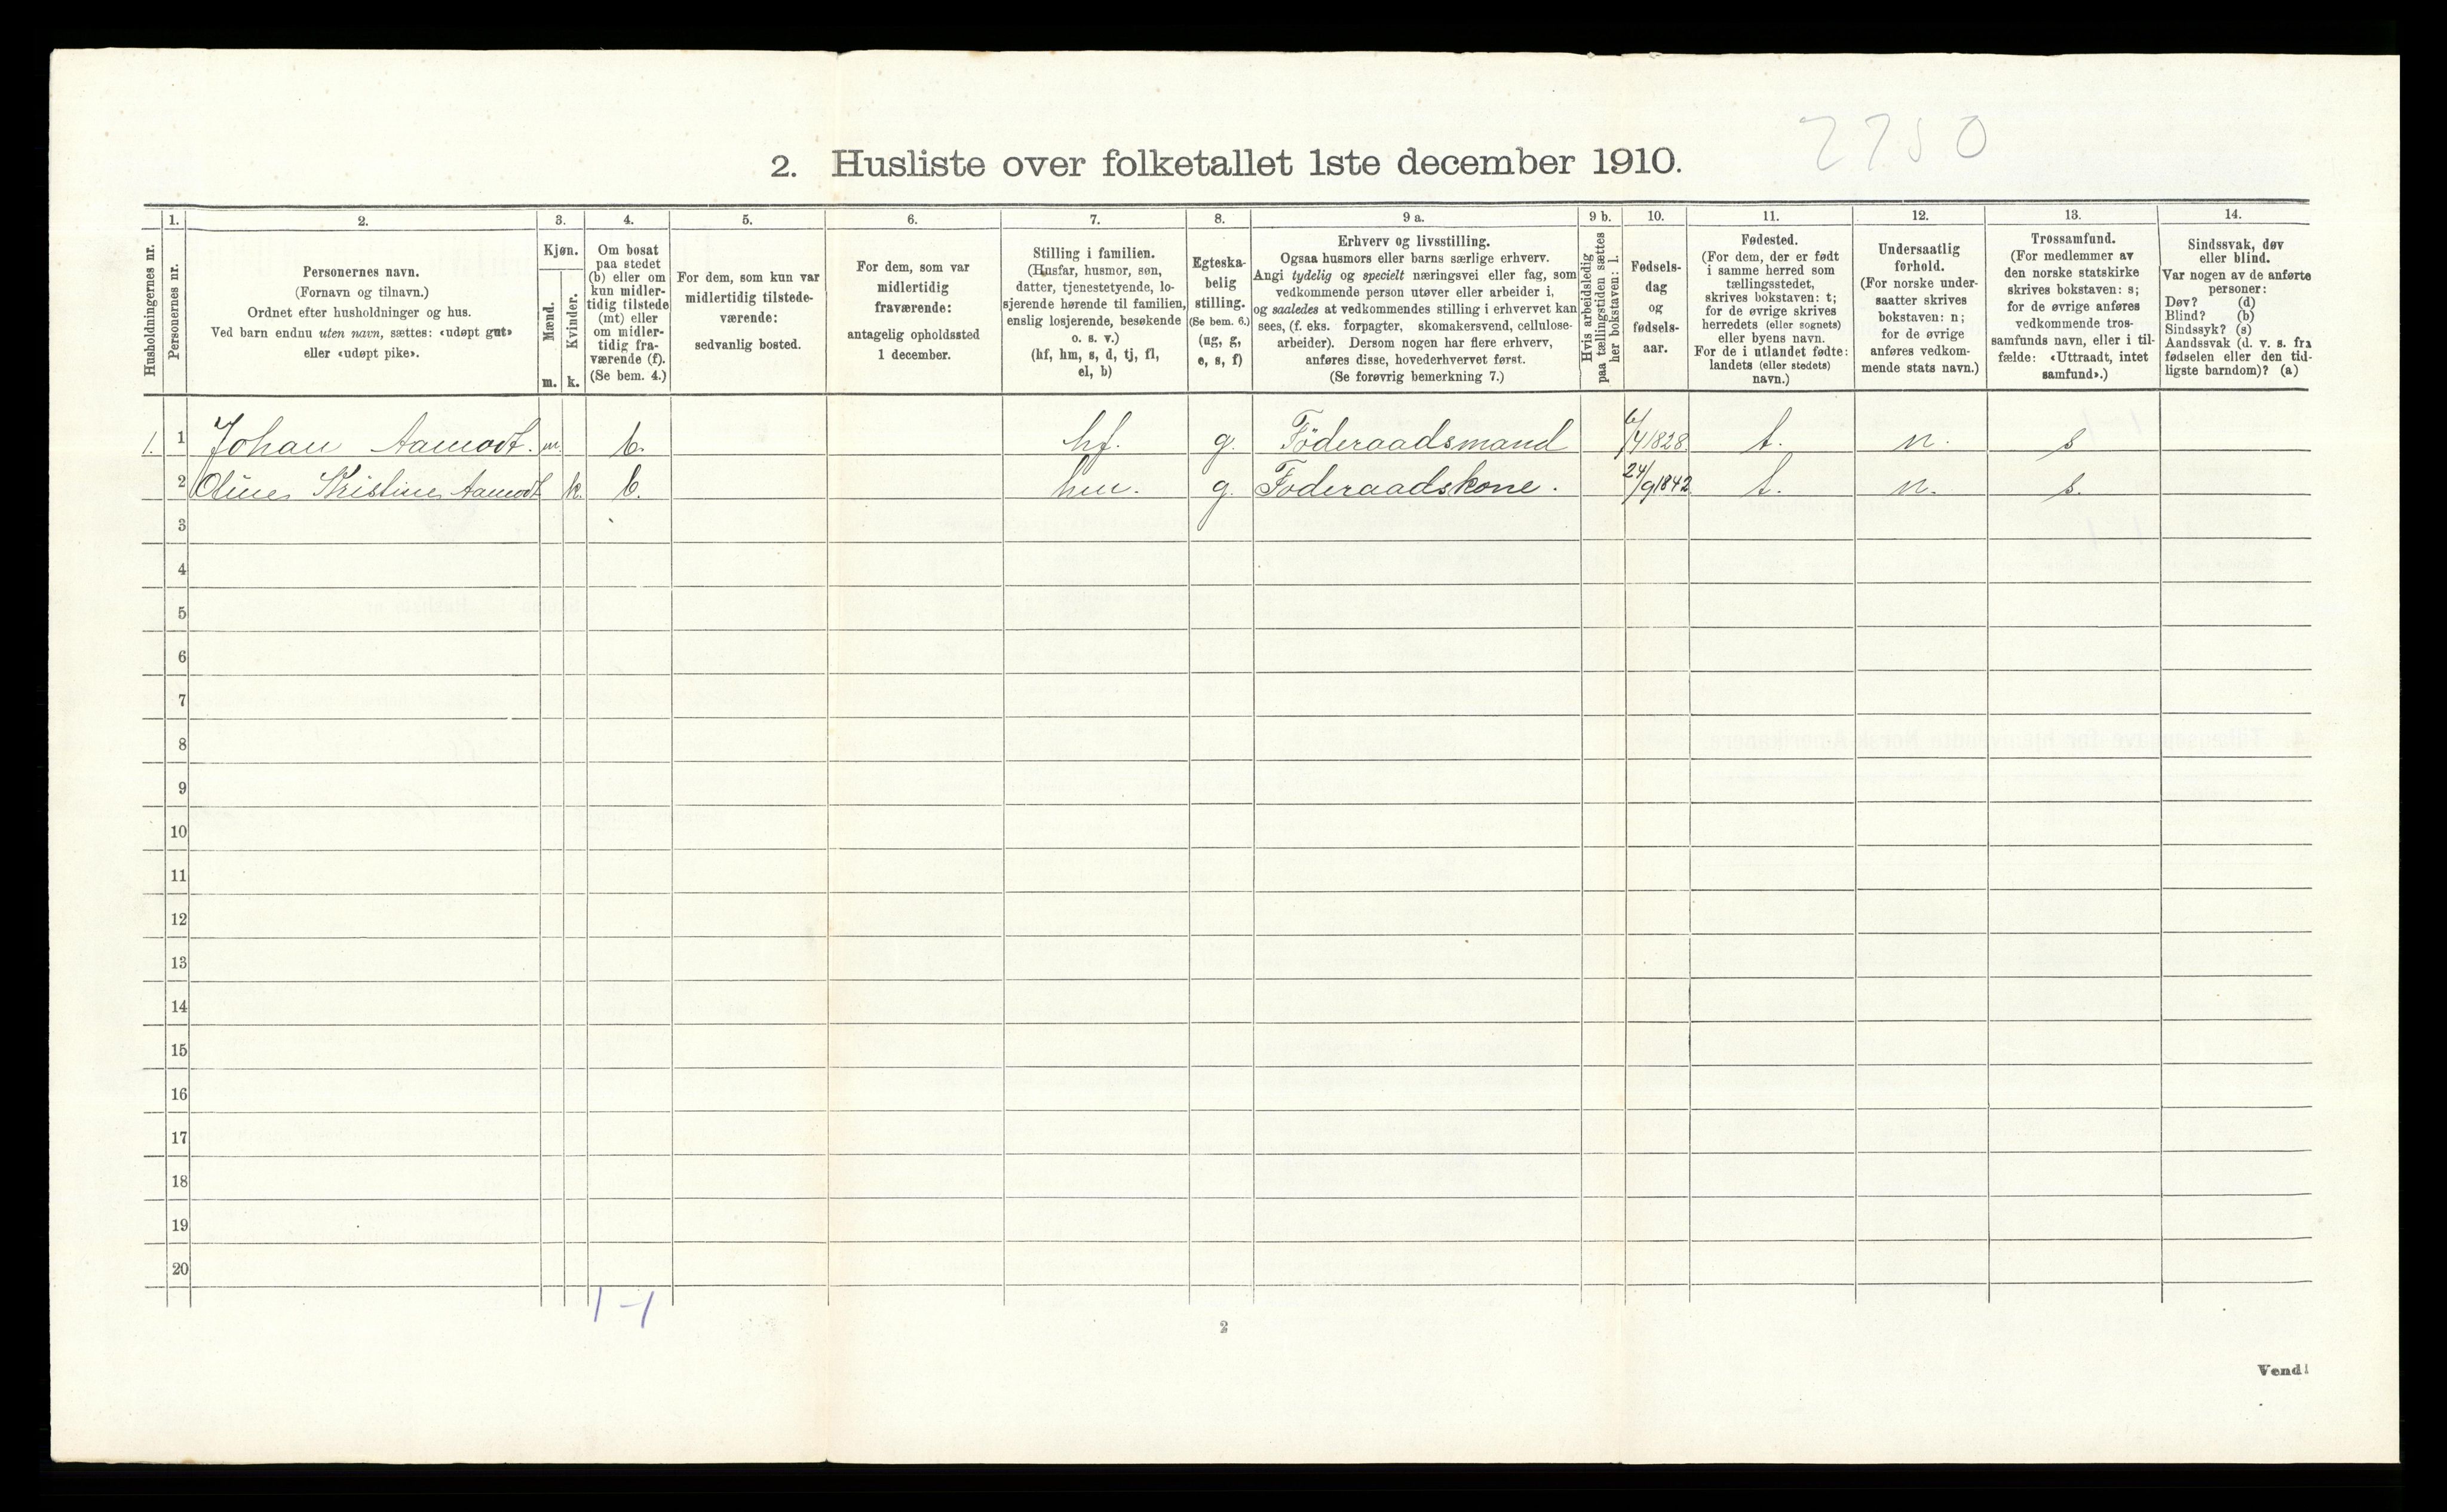 2750
2. Husliste over folketallet 1ste december 1910.
Husholdningernes nr.
1.
Personernes nr.
2.
Personernes navn.
(Fornavn og tilnavn.)
Ordnet efter husholdninger og hus.
Ved barn endnu uten navn, sættes: «udøpt gut»
eller «udøpt pike».
3.
Kjøn.
Mænd.
m.
Kvinder.
k.
4.
Om bosat
paa stedet
(b) eller om
kun midler-
tidig tilstede
(mt) eller
om midler-
tidig fra-
værende (f).
(Se bem. 4.)
5.
For dem, som kun var
midlertidig tilstede-
værende:
sedvanlig bosted.
6.
For dem, som var
midlertidig
fraværende:
antagelig opholdssted
1 december.
7.
Stilling i familien.
(Husfar, husmor, søn,
datter, tjenestetyende, lo-
sjerende hørende til familien,
enslig losjerende, besøkende
o. s. v.)
(hf, hm, s, d, tj, fl,
el, b)
8.
Egteska-
belig
stilling.
(Se bem. 6.)
(ug, g,
e, s, f)
9 a.
Erhverv og livsstilling.
Ogsaa husmors eller barns særlige erhverv.
Angi tydelig og specielt næringsvei eller fag, som
vedkommende person utøver eller arbeider i,
og saaledes at vedkommendes stilling i erhvervet kan
sees, (f. eks. forpagter, skomakersvend, cellulose-
arbeider). Dersom nogen har flere erhverv,
anføres disse, hovederhvervet først.
(Se forøvrig bemerkning 7.)
9 b.
Hvis arbeidsledig
paa tællingstiden sættes
her bokstaven: l.
10.
Fødsels-
dag
og
fødsels-
aar.
11.
Fødested.
(For dem, der er født
i samme herred som
tællingsstedet,
skrives bokstaven: t;
for de øvrige skrives
herredets (eller sognets)
eller byens navn.
For de i utlandet fødte:
landets (eller stedets)
navn.)
12.
Undersaatlig
forhold.
(For norske under-
saatter skrives
bokstaven: n;
for de øvrige
anføres vedkom-
mende stats navn.)
13.
Trossamfund.
(For medlemmer av
den norske statskirke
skrives bokstaven: s;
for de øvrige anføres
vedkommende tros-
samfunds navn, eller i til-
fælde: «Uttraadt, intet
samfund».)
14.
Sindssvak, døv
eller blind.
Var nogen av de anførte
personer:
Døv? (d)
Blind? (b)
Sindssyk? (s)
Aandssvak (d. v. s. fra
fødselen eller den tid-
ligste barndom)? (a)
1. 1 Johan Aamodt. m. b. hf. g. Föderaadsmand 6/4 1828. t. n. s
2 Oline Kristine Aamodt k. b. hm. g. Föderaadskone. 24/9 1842 t. n. s.
3
4
5
6
7
8
9
10
11
12
13
14
15
16
17
18
19
20
1 - 1
2
Vend!